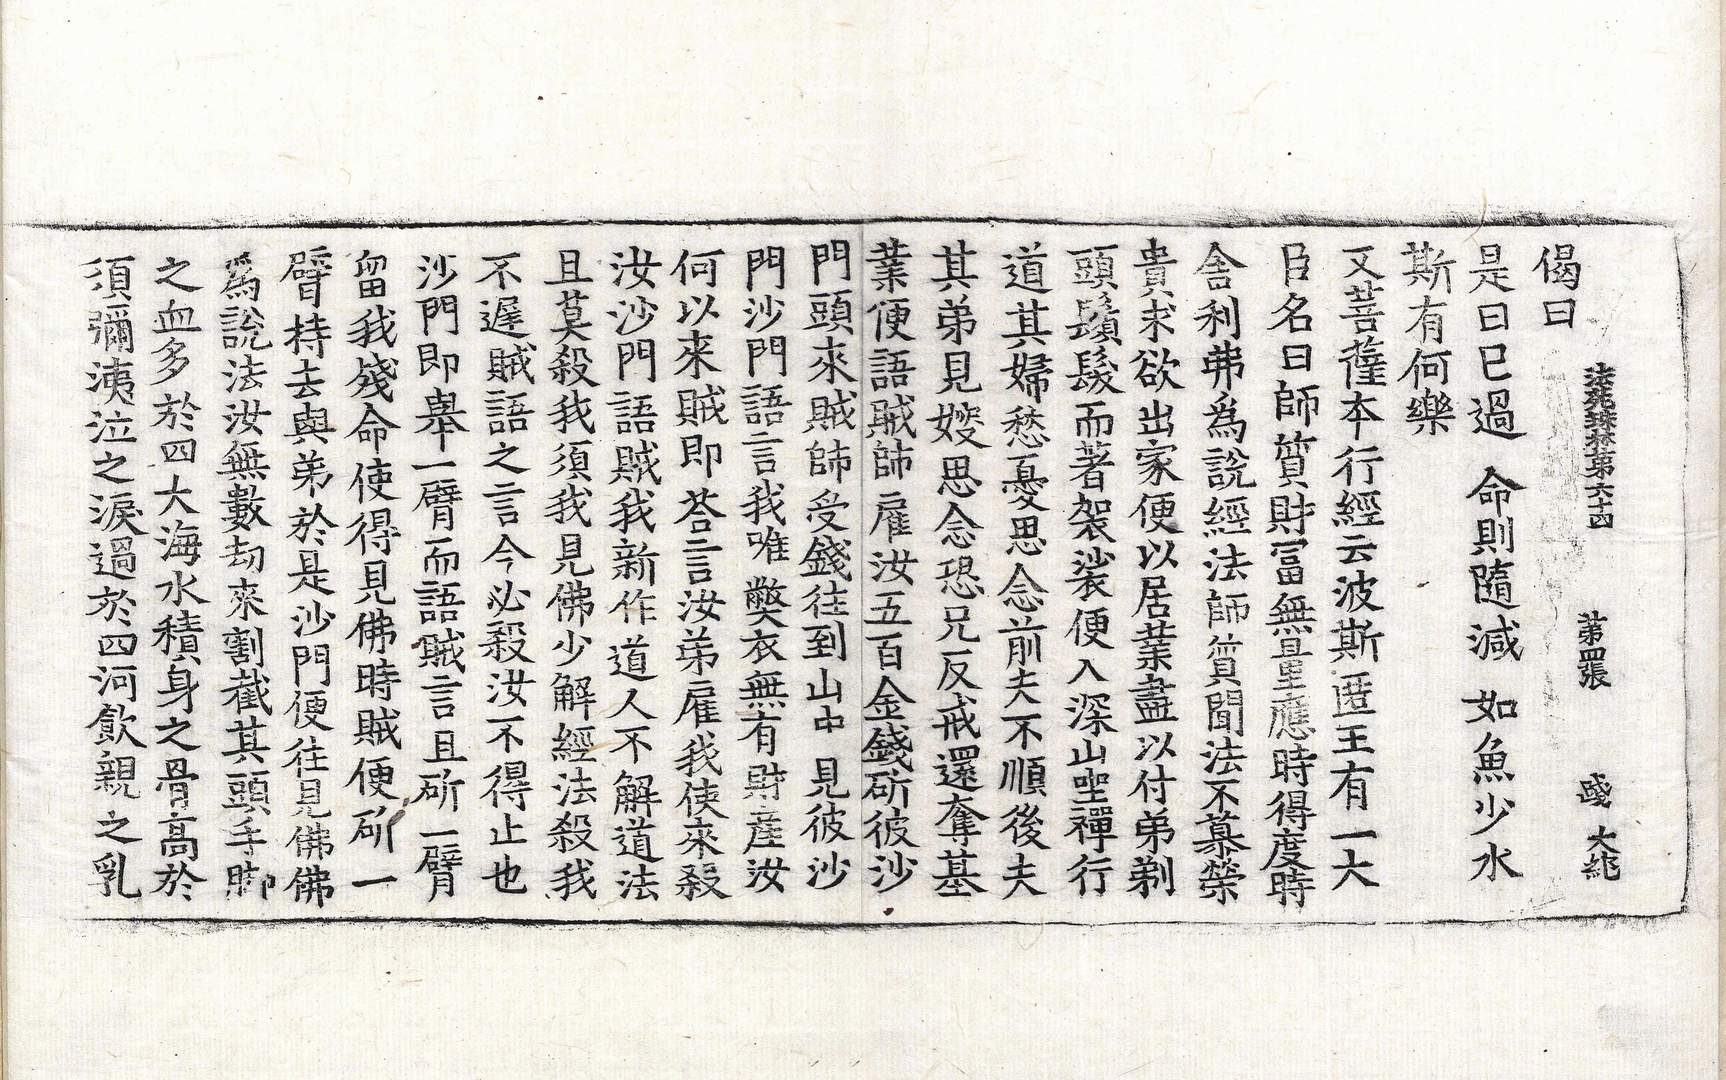 法苑珠林第六十四 第四張 㦮 大兆
偈曰
是日已過 命則隨減 如魚少水
斯有何樂
又菩薩本行經云波斯匿王有一大
臣名曰師質財冨無量應時得度時
舎利弗爲說經法師質聞法不慕榮
貴求欲出家便以居業盡以付弟剃
頭鬚髮而著袈裟便入深山坐禪行
道其婦愁憂思念前夫不順後夫
其弟見嫂思念恐兄反戒還奪基
業便語賊師雇汝五百金錢斫彼沙
門頭來賊師受錢往到山中見彼沙
門沙門語言我唯弊衣無有財産汝
何以来賊即荅言汝弟雇我使來殺
汝沙門語賊我新作道人不解道法
且莫殺我須我見佛少解經法殺我
不遲賊語之言今必殺汝不得止也
沙門即舉一臂而語賊言且斫一臂
留我殘命使得見佛時賊便斫一
臂持去與弟於是沙門便往見佛佛
爲說法汝無數劫來割截其頭手脚
之血多於四大海水積身之骨高於
須彌洟泣之淚過於四河飲親之乳